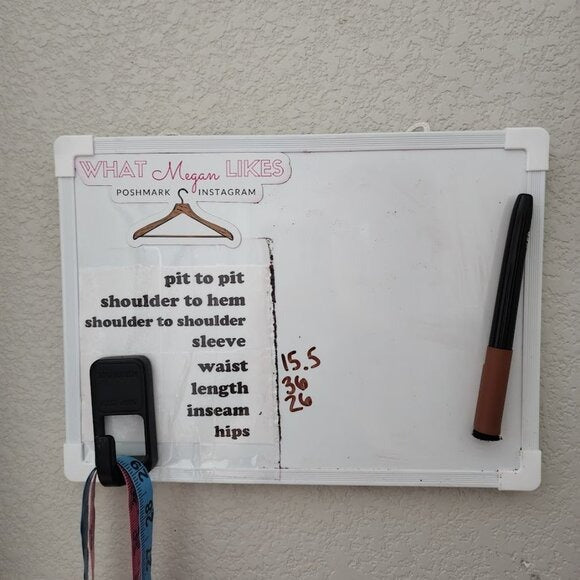 WHAT Megan LIKES
POSHMARK INSTAGRAM
pit to pit
shoulder to hem
shoulder to shoulder
sleeve
waist 15.5
length 36
inseam 26
hips